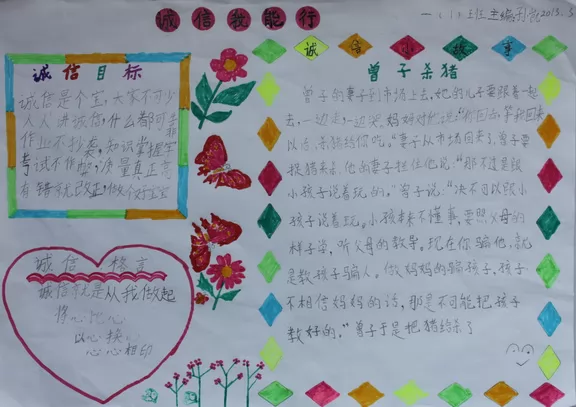 诚信我能行
一(1)班 主编 2015.5
诚信小故事
诚信目标
诚信是个宝,大家不可少
人人讲诚信,什么都可靠
作业不抄袭,知识掌握牢
考试不作弊,质量真正高
有错就改正,做个好宝宝
诚信 格言
诚信就是从我做起
将心比心
以心换心
心心相印
曾子杀猪
曾子的妻子到市场上去,她的儿子要跟着一起
去,一边走,一边哭。妈妈对他说:"你回去,等我回来
以后,杀猪给你吃。"妻子从市场回来了,曾子要
捉猪来杀,他的妻子拦住他说:"那不过是跟
小孩子说着玩的。"曾子说:"决不可以跟小
孩子说着玩。小孩本来不懂事,要照父母的
样子学,听父母的教导。现在你骗他,就
是教孩子骗人。做妈妈的骗孩子,孩子
不相信妈妈的话,那是不可能把孩子
教好的。"曾子于是把猪给杀了